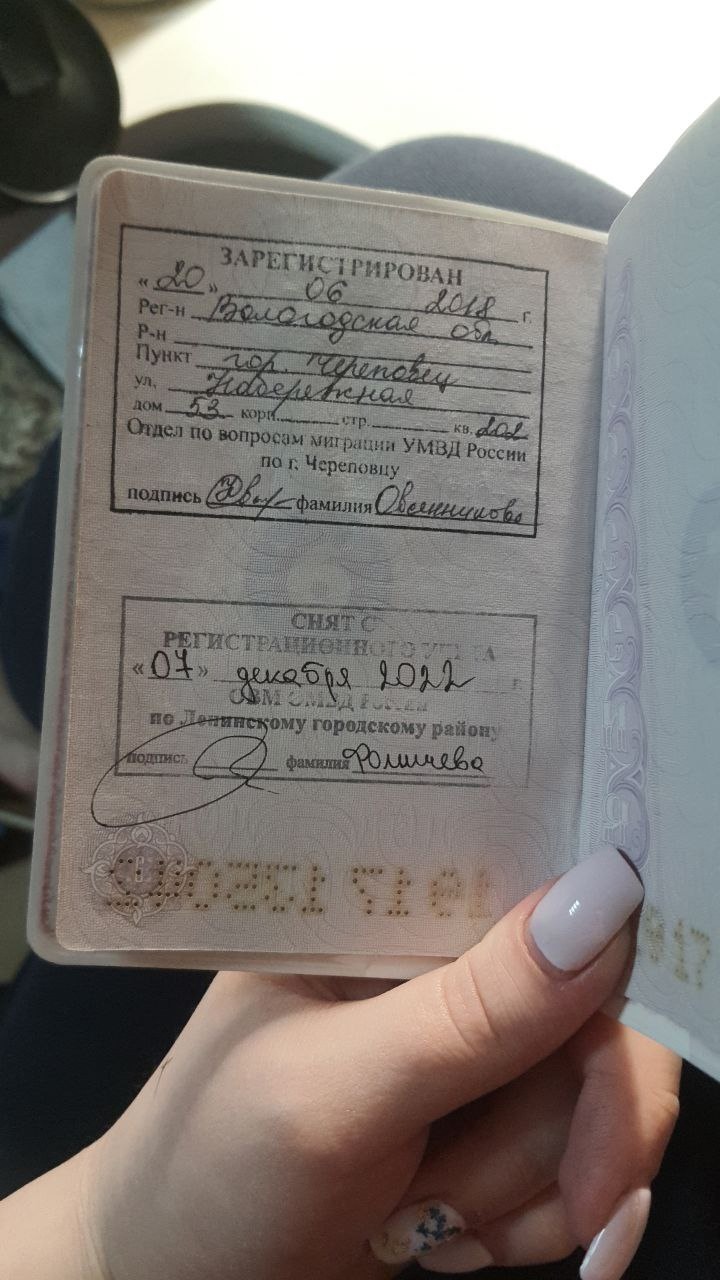 ЗАРЕГИСТРИРОВАН
«20» 06 2018 г.
Рег-н Вологодская обл
Р-н
Пункт гор. Череповец
ул. Набережная
дом 53 корп. стр. кв. 202
Отдел по вопросам миграции УМВД России
по г. Череповцу
подпись фамилия Овсянникова
СНЯТ С
РЕГИСТРАЦИОННОГО УЧЕТА
«07» декабря 2022 г.
ОВМ ОМВД России
по Ленинскому городскому району
подпись фамилия Фомичева